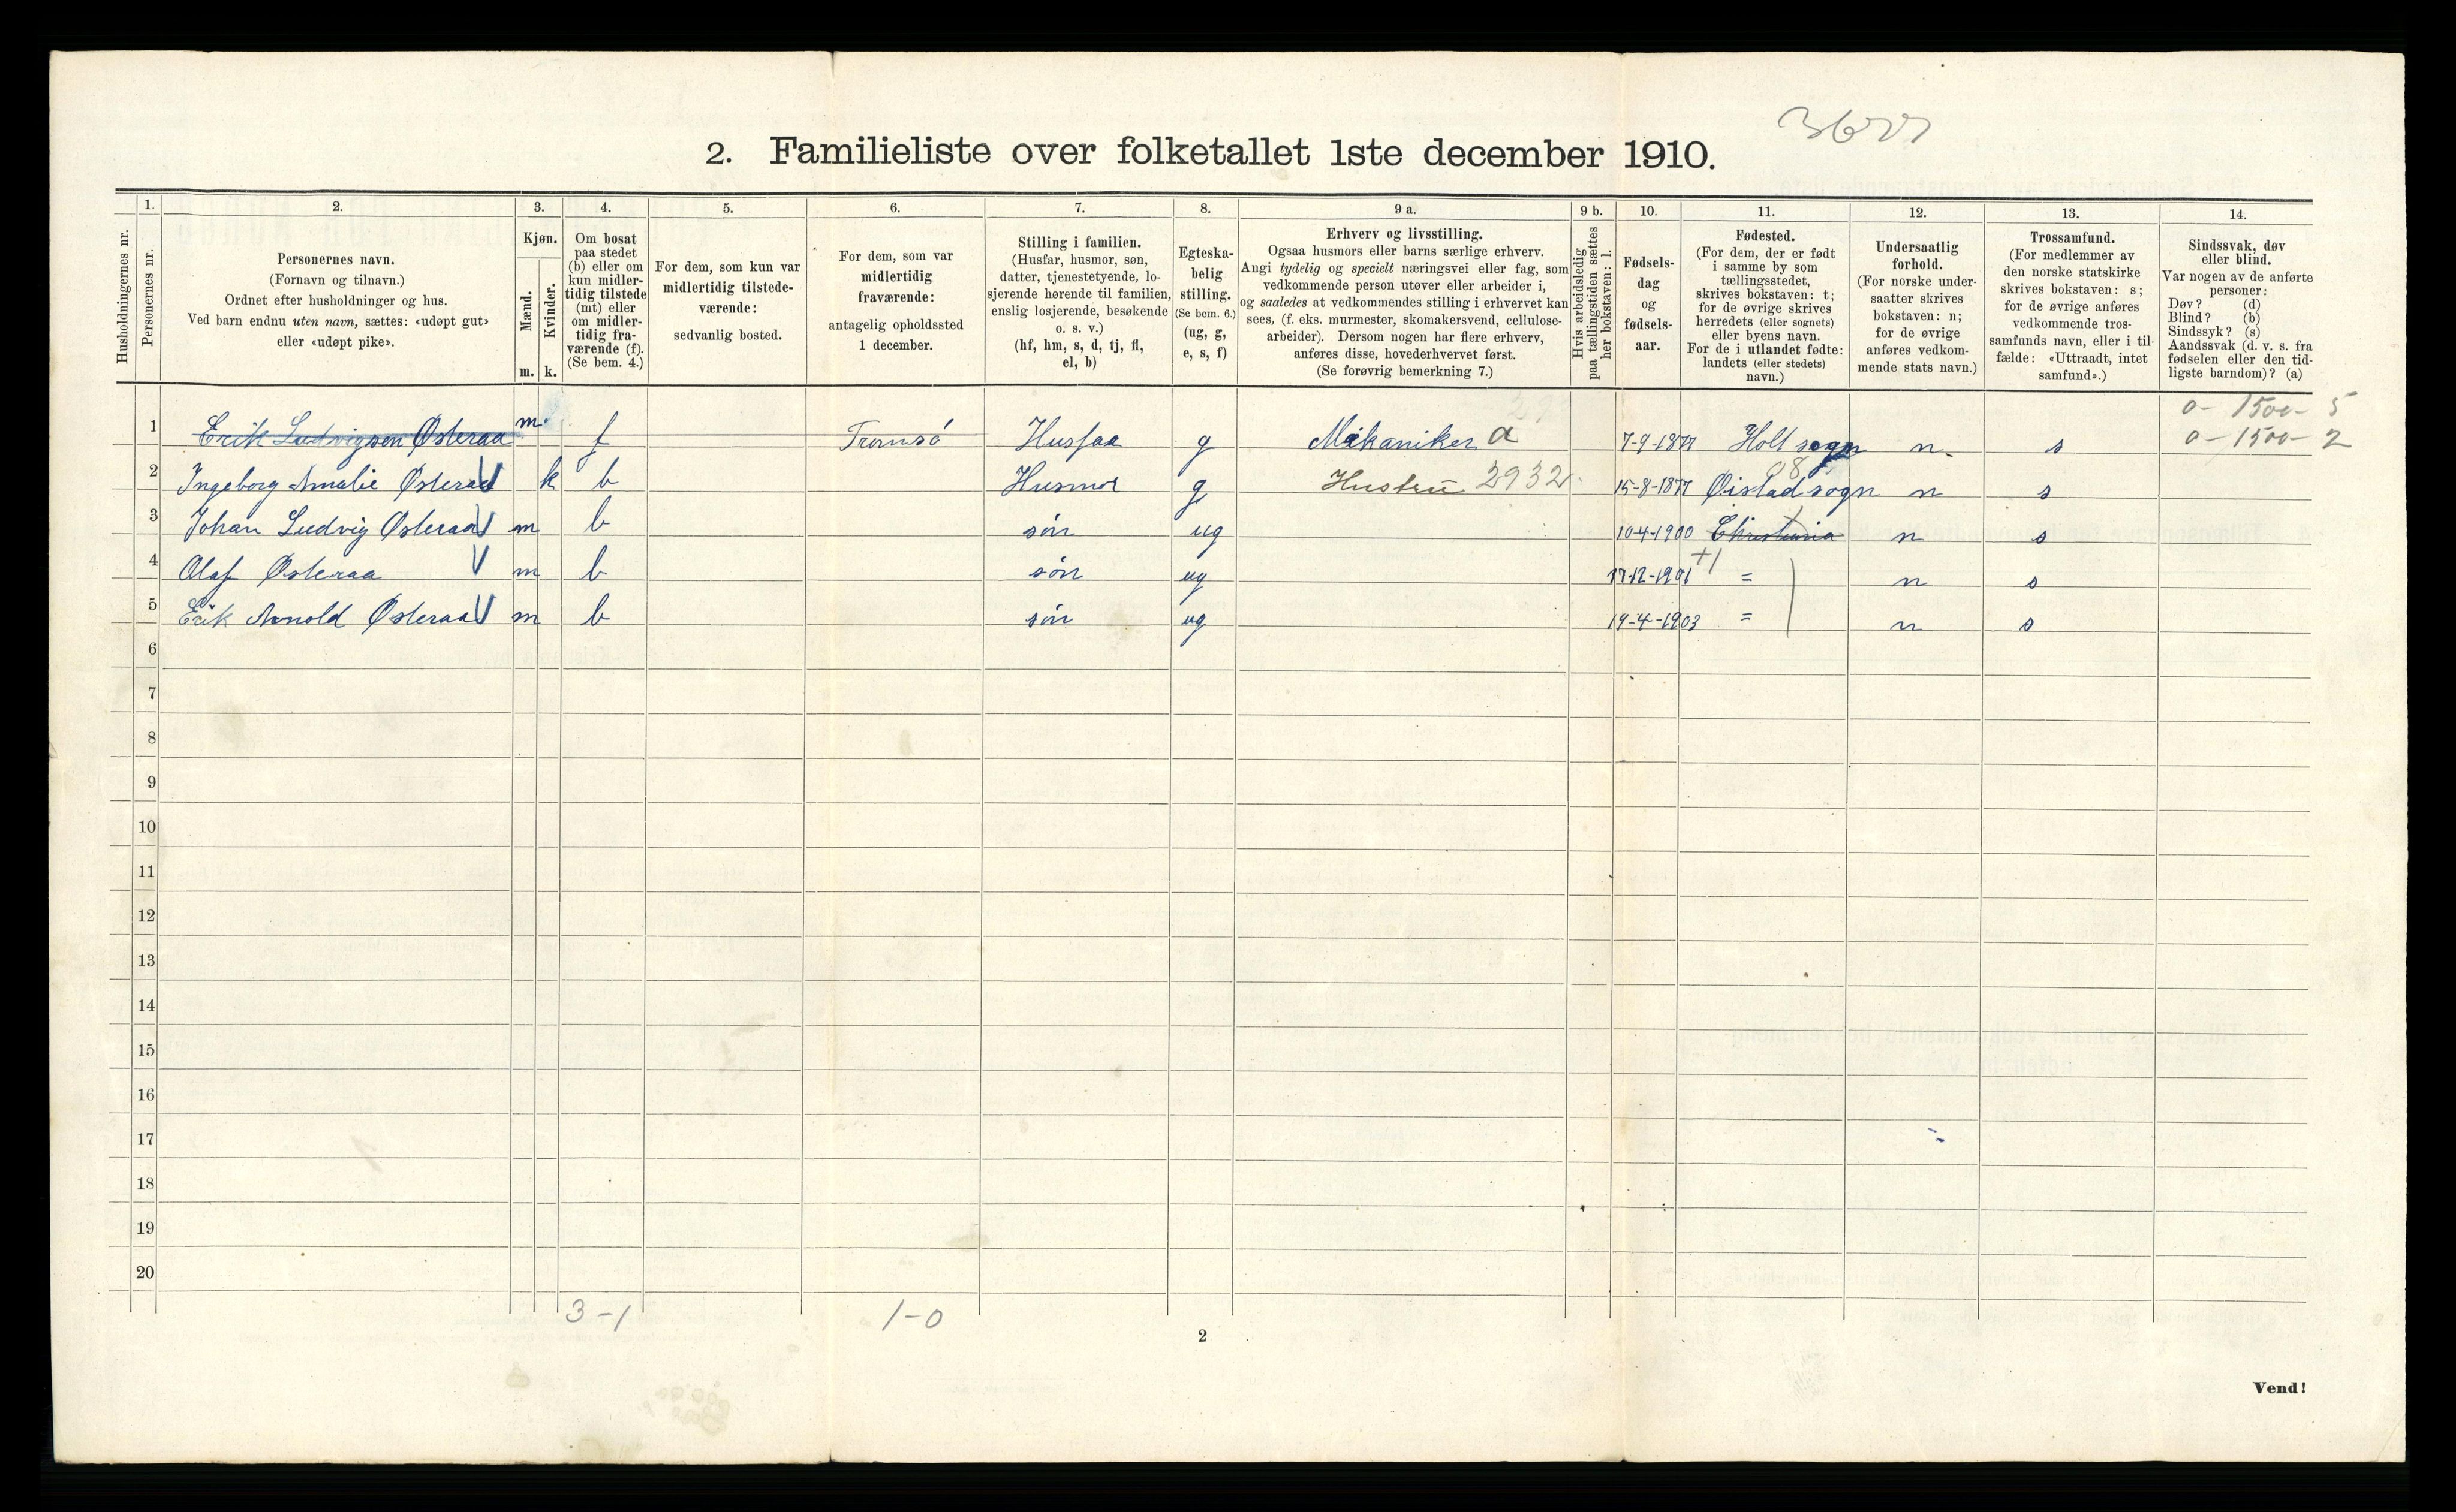 3677
2. Familieliste over folketallet 1ste december 1910.
1. 2. 3. 4. 5. 6. 7. 8. 9 a. 9 b. 10. 11. 12. 13. 14.
Husholdningernes nr.
Personernes nr.
Personernes navn.
(Fornavn og tilnavn.)
Ordnet efter husholdninger og hus.
Ved barn endnu uten navn, sættes: «udøpt gut»
eller «udøpt pike».
Kjøn.
Mænd.
Kvinder.
m. k.
Om bosat
paa stedet
(b) eller om
kun midler-
tidig tilstede
(mt) eller
om midler-
tidig fra-
værende (f).
(Se bem. 4.)
For dem, som kun var
midlertidig tilstede-
værende:
sedvanlig bosted.
For dem, som var
midlertidig
fraværende:
antagelig opholdssted
1 december.
Stilling i familien.
(Husfar, husmor, søn,
datter, tjenestetyende, lo-
sjerende hørende til familien,
enslig losjerende, besøkende
o. s. v.)
(hf, hm, s, d, tj, fl,
el, b)
Egteska-
belig
stilling.
(Se bem. 6.)
(ug, g,
e, s, f)
Erhverv og livsstilling.
Ogsaa husmors eller barns særlige erhverv.
Angi tydelig og specielt næringsvei eller fag, som
vedkommende person utøver eller arbeider i,
og saaledes at vedkommendes stilling i erhvervet kan
sees, (f. eks. murmester, skomakersvend, cellulose-
arbeider). Dersom nogen har flere erhverv,
anføres disse, hovederhvervet først.
(Se forøvrig bemerkning 7.)
Hvis arbeidsledig
paa tællingstiden sættes
her bokstaven: l.
Fødsels-
dag
og
fødsels-
aar.
Fødested.
(For dem, der er født
i samme by som
tællingsstedet,
skrives bokstaven: t;
for de øvrige skrives
herredets (eller sognets)
eller byens navn.
For de i utlandet fødte:
landets (eller stedets)
navn.)
Undersaatlig
forhold.
(For norske under-
saatter skrives
bokstaven: n;
for de øvrige
anføres vedkom-
mende stats navn.)
Trossamfund.
(For medlemmer av
den norske statskirke
skrives bokstaven: s;
for de øvrige anføres
vedkommende tros-
samfunds navn, eller i til-
fælde: «Uttraadt, intet
samfund».)
Sindssvak, døv
eller blind.
Var nogen av de anførte
personer:
Døv? (d)
Blind? (b)
Sindssyk? (s)
Aandssvak (d. v. s. fra
fødselen eller den tid-
ligste barndom)? (a)
0- 1500- 5
1 Erik Ludvigsen Østeraa m. f Tromsø Husfaa g Mekaniker a 7-9-1877 Holt sogn n. s 0-1500- 2
2 Ingeborg Amalie Østeraa k b Husmor g Hustru 2932 15-8-1877 Øistad sogn n s
3 Johan Ludvig Østeraa m b søn ug 10-4-1900 Christiania n s
4 Olaf Østeraa m b søn ug 17-12-1901 = n s
5 Erik Arnold Østeraa m b søn ug 19-4-1903 = n s
6
7
8
9
10
11
12
13
14
15
16
17
18
19
20
3-1 1-0
2
Vend!